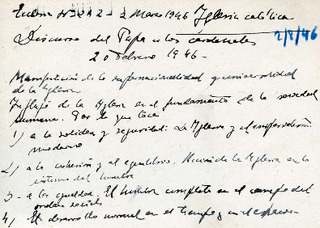 Ecclesia Nº 242 - 2 Marzo 1946 Iglesia católica
2/3/46
Discurso del Papa a los cardenales
20 Febrero 1946 -
Manifestación de la supranacionalidad y universalidad
de la Iglesia
Influjo de la Iglesia en el fundamento de la sociedad
humana. Por lo que toca
1) a la solidez y seguridad: La Iglesia y el imperialismo
moderno
2) a la cohesión y al equilibrio. de la Iglesia en lo
interno del hombre
3 - a la igualdad. El hombre completo en el campo del
orden social
4) El desarrollo normal en el tiempo y en el espacio